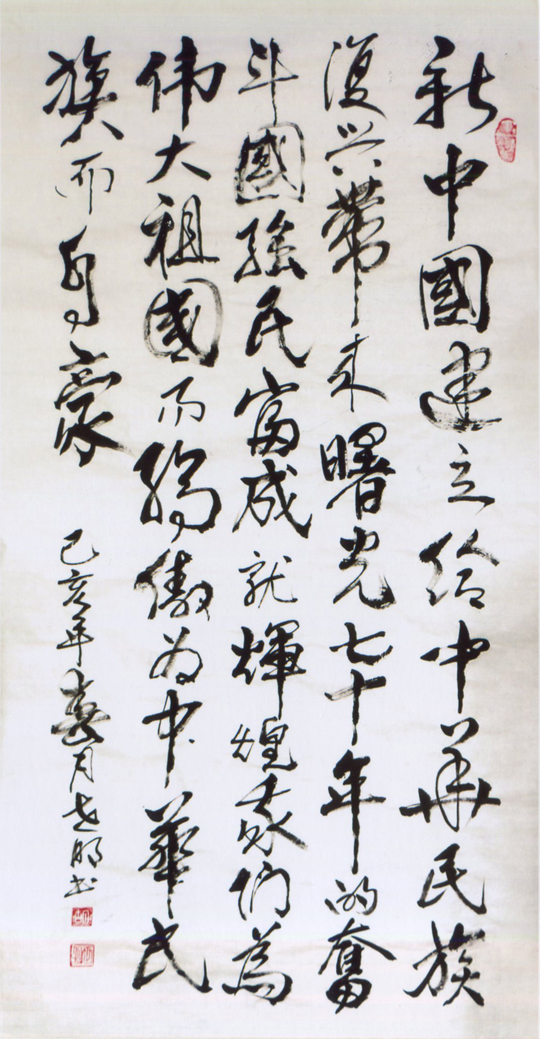 新中國建立给中华民族
復兴带来曙光七十年的奮
斗國強民富成就輝煌我们為
伟大祖國而骄傲为中華民
族而自豪
己亥年春月志明书